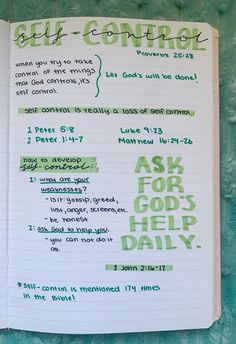 SELF-CONTROL
self-control
Proverbs 25:28
when you try to take
control of the things
that God controls, it's
self control.
Let God's will be done!
self control is really a loss of self control
1 Peter 5:8
Luke 9:23
2 Peter 1:4-7
Matthew 16:24-26
how to develop
self-control:
1: what are your
weaknesses?
- is it gossip, greed,
lust, anger, screens, etc.
- be honest
2: ask God to help you.
- you can not do it
ASK
FOR
GOD'S
HELP
DAILY.
1 John 2:16-17
*Self-control is mentioned 174 times
in the Bible!